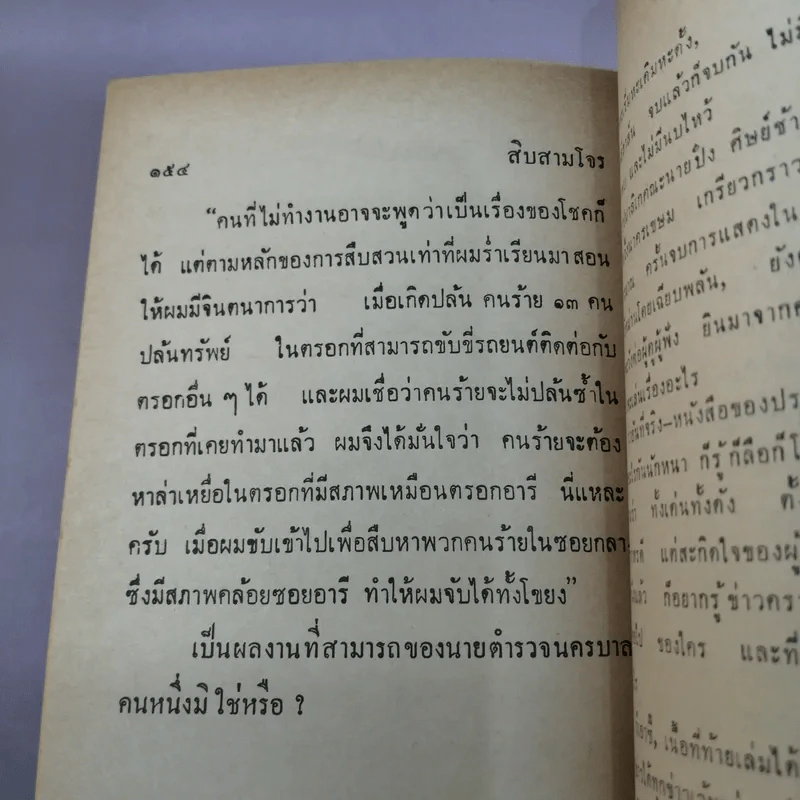 ๑๕๔ สิบสามโจร
“คนที่ไม่ทำงานอาจจะพูดว่าเป็นเรื่องของโชคก็
ได้ แต่ตามหลักของการสืบสวนเท่าที่ผมร่ำเรียนมา สอน
ให้ผมมีจินตนาการว่า เมื่อเกิดปล้น คนร้าย ๑๓ คน
ปล้นทรัพย์ ในตรอกที่สามารถขับขี่รถยนต์ติดต่อกับ
ตรอกอื่น ๆ ได้ และผมเชื่อว่าคนร้ายจะไม่ปล้นซ้ำใน
ตรอกที่เคยทำมาแล้ว ผมจึงได้มั่นใจว่า คนร้ายจะต้อง
หาล่าเหยื่อในตรอกที่มีสภาพเหมือนตรอกอารี นี่แหละ
ครับ เมื่อผมขับเข้าไปเพื่อสืบหาพวกคนร้ายในซอยกลา
ซึ่งมีสภาพคล้อยซอยอารี ทำให้ผมจับได้ทั้งโขยง”
เป็นผลงานที่สามารถของนายตำรวจนครบาล
คนหนึ่งมิใช่หรือ ?
จบแล้วก็จบกัน
และไม่มีนบไหว้
คณะนายปิง ศิษย์ช้า
เกรียวกราว
ครั้นจบการแสดงใน
โดยเฉียบพลัน, ยัง
ยินมาจาก
เรื่องอะไร
ที่จริง—หนังสือของประ
นักหนา ก็รู้ ก็ลือก็โ
ทั้งเด่นทั้งดัง
แต่สะกิดใจของผู้
ก็อยากรู้ ข่าวครา
ของใคร และที่
เนื้อที่ท้ายเล่มได้